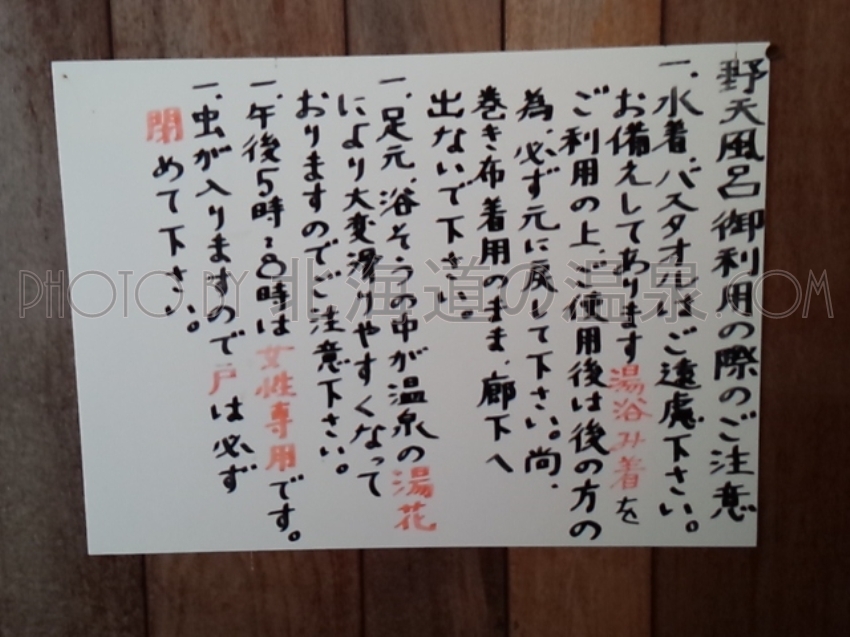 野天風呂御利用の際のご注意
一、水着、バスタオルはご遠慮下さい。
お備えしてあります湯浴み着を
ご利用の上、ご使用後は後の方の
為、必ず元に戻して下さい。尚、
巻き布着用のまま、廊下へ
出ないで下さい。
一、足元、浴そうの中が温泉の湯花
により大変滑りやすくなって
おりますのでご注意下さい。
一、午後5時~8時は女性専用です。
一、虫が入りますので戸は必ず
閉めて下さい。
PHOTO BY 北海道の温泉.COM